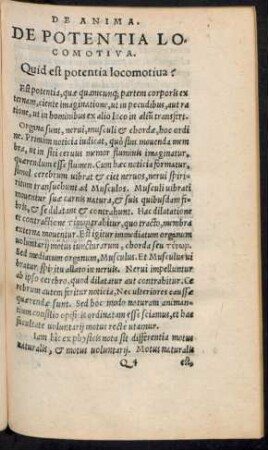 DE ANIMA.
DE POTENTIA LO-
COMOTIVA.
Quid est potentia locomotiua?
Est potentia, quæ quamcunq; partem corporis ex
ternam, ciente imaginatione, ut in pecudibus, aut ra
tione, ut in hominibus ex alio loco in aliũ transfert.
Organa sunt, nerui, musculi & chordæ, hoc ordi
ne. Primùm noticia indicat, quò sint mouenda mem
bra, ut in siti ceruus memor fluminis imaginatur,
quærendum esse flumen. Cum hæc noticia formatur,
simul cerebrum uibrat & ciet neruos, nerui spiri-
tum transuehunt ad Musculos. Musculi uibrati
mouentur sua carnis natura, & suis quibusdam fi-
bris, & se dilatant & contrahunt. Hac dilatatione
et contractione tractu, membra
externa mouentur. Est igitur immediatum organum
uoluntarij motus iuncturarum, chorda seu
Sed mediatum organum, Musculus. Et Musculus ui
bratur spiritu allato in neruis. Nerui impelluntur
ab ipso cerebro, quod dilatatur aut contrahitur. Ce
rebrum autem feritur noticia. Nec ulteriores caussæ
quærendæ sunt. Sed hoc modo motum animan-
tium consilio opificis ordinatum esse sciamus, et hac
facultate uoluntarij motus recte utamur.
Iam hic ex physicis nota sit differentia motus
naturalis, & motus uoluntarij. Motus naturalis
Q 4 est,